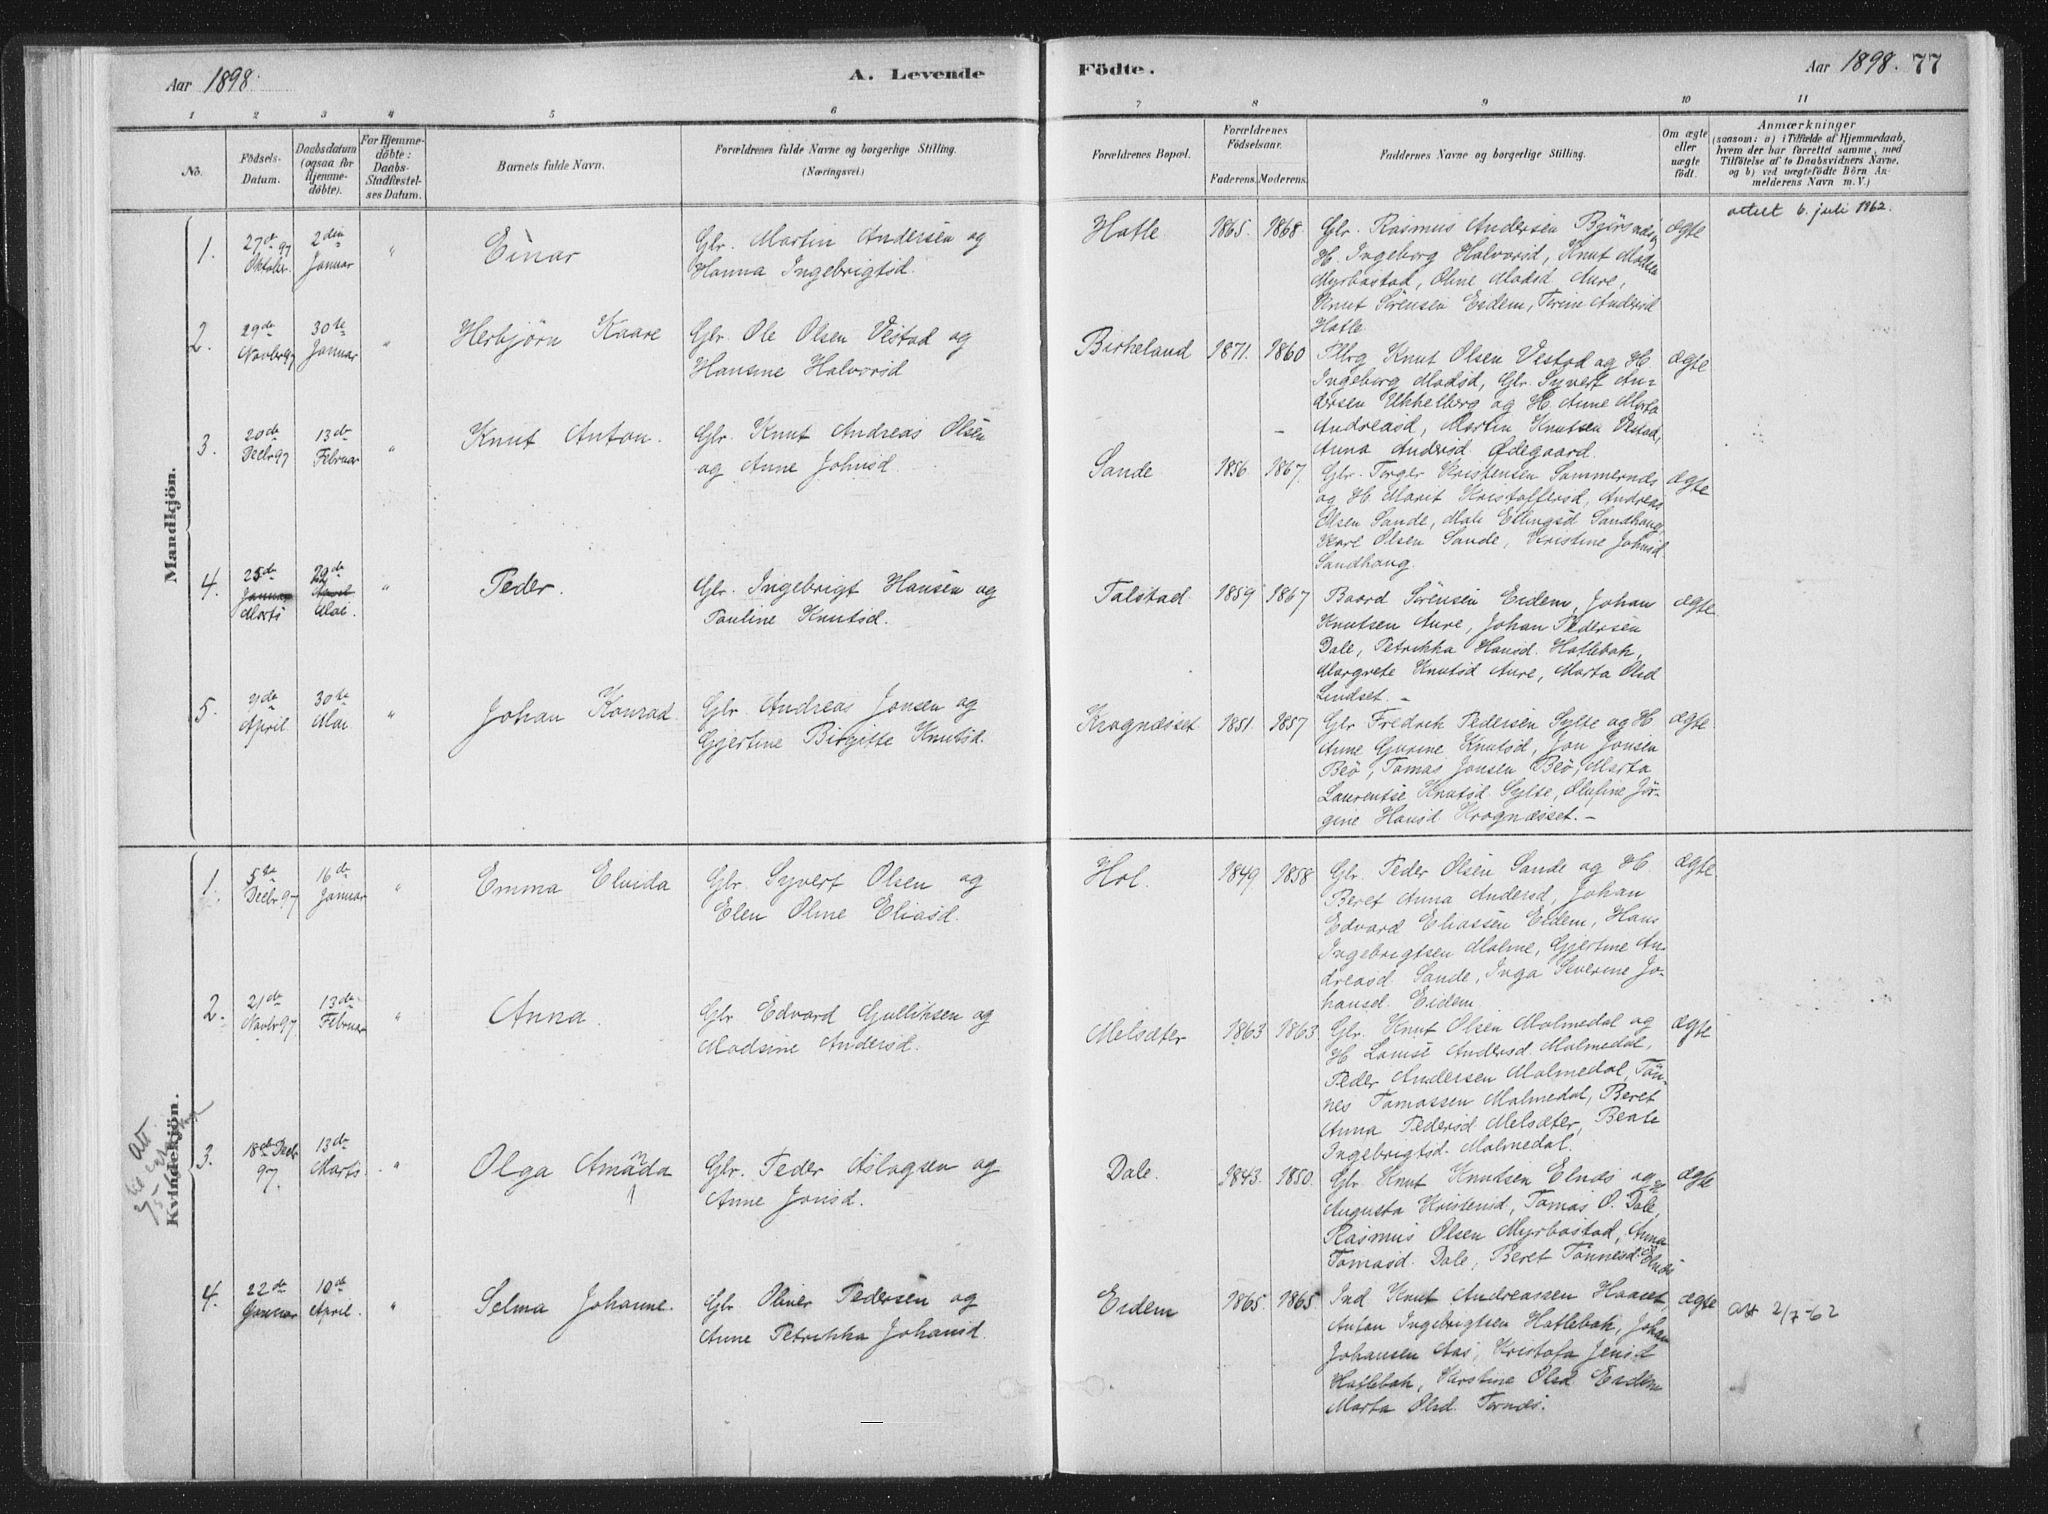 Aar 1898.
A. Levende
1 2 3 4 5 6
No.
Födsels-
Datum.
Daabsdatum
(ogsaa for
Hjemme-
döbte).
For Hjemme-
döbte:
Daabs-
Stadfæstel-
ses Datum.
Barnets fulde Navn.
Forældrenes fulde Navne og borgerlige Stilling.
(Næringsvei.)
Mandkjön.
1. 27de Oktober 97 2den Januar " Einar
Glr. Martin Andersen og
Hanna Ingebrigtsd.
2. 29de Novbr 97 30te Januar " Herbjörn Kaare
Glr. Ole Olsen Vestad og
Hansine Halvorsd
3. 20de Decbr 97 13de Februar " Knut Anton.
Glr. Knut Andreas Olsen
og Anne Johnsd.
4. 25de Januar Marts 29de April Mai. " Peder.
Glr. Ingebrigt Hansen og
Pauline Knutsd.
5. 7de April 30te Mai " Johan Konrad
Glr. Andreas Jonsen og
Gjertine Birgitte Knutsd.
Kvindekjön.
1. 5te Decbr 97 16de Januar " Emma Elvida
Glr. Syvert Olsen og
Elen Oline Eliasd.
2. 21de Novbr 97. 13de Februar " Anna.
Glr. Edvard Gulliksen og
Madsine Andersd.
3. 18de Decbr 97. 13de Marts. " Olga Amanda
Glr. Peder Aslagsen og
Anne Jonsd.
4. 22de Januar 10de April. " Selma Johanne.
Glr Oliver Pedersen og
Anne Petrikka Johansd.
Födte.
Aar 1898. 77
7 8 9 10 11
Forældrenes Bopæl.
Forældrenes
Födselsaar.
Faderens. Moderens.
Faddernes Navne og borgerlige Stilling.
Om ægte
eller
uægte
födt.
Anmærkninger
(saasom: a) i Tilfælde af Hjemmedaab,
hvem der har forrettet samme, med
Tilföielse af to Daabsvidners Navne,
og b) ved uægtefödte Börn An-
melderens Navn m. V.)
attest 6. juli 1962.
Hatle 1865. 1868. Glr. Rasmus Andersen ægte
H. Ingeborg Halvorsd, Knut Madsen
Myrbostad, Oline Madsd Aure,
Knut Sörensen Eidem, Andersd
Hatle
Birkeland 1871. 1860 Knut Olsen Vestad og H. ægte
Ingeborg Madsd, Glr. Syvert An-
dersen Ukkelberg og H. Anne Marta
Andreasd, Martin Knutsen Vestad,
Anna Andersd. Ødegaard.
Sande 1856. 1867. Glr. Torger Kristensen Sammernes ægte
og H. Marit Kristoffersd, Andreas
Olsen Sande, Mali Ellingsd Sandhaug,
Karl Olsen Sande, Kristine Johnsd
Sandhaug.
Talstad. 1859 1867 Baard Sörensen Eidem, Johan ægte
Knutsen Aure, Johan Pedersen
Dale, Petrikka Hansd. Hatlebak,
Margrete Knutsd Aure, Marta Olsd
Lindset. -
Krognæsset 1851. 1857 Glr Fredrik Pedersen Sylte og H. ægte.
Anne Gurine Knutsd, Jon Jonsen
Beö, Tomas Jonsen Beö, Marta
Laurentse Knutsd. Sylte, Olufine Jör-
gine Hansd Krognæsset. -
Hol. 1849 1858 Glr. Peder Olsen Sande og H. ægte
Beret Anna Andersd, Johan
Edvard Eliassen Eidem, Hans
Ingebrigtsen Malme, Gjertine An-
dreasd Sande, Inga Severine Jo-
hansd. Eidem.
Melsæter 1863 1863 Glr. Knut Olsen Malmedal og ægte
H. Louise Andersd. Malmedal,
Peder Andersen Malmedal, Tön-
nes Tomassen Malmedal, Beret
Anna Pedersd Melsæter, Beate
Ingebrigtsd. Malmedal.
Dale. 1843. 1850. Glr. Knut Knutsen Elnæs og H. ægte
Augusta Kristensd, Tomas O. Dale,
Rasmus Olsen Myrbostad, Anna
Tomasd. Dale, Beret Tönnesd. Elnæs
Eidem 1865 1865 Ind Knut Andreassen Haaset, ægte att 2/7-62
Anton Ingebrigtsen Hatlebak, Johan
Johansen Aas, Kristofa Jensd
Hatlebak, Kirstine Olsd. Eidem
Marta Olsd. Tornes.